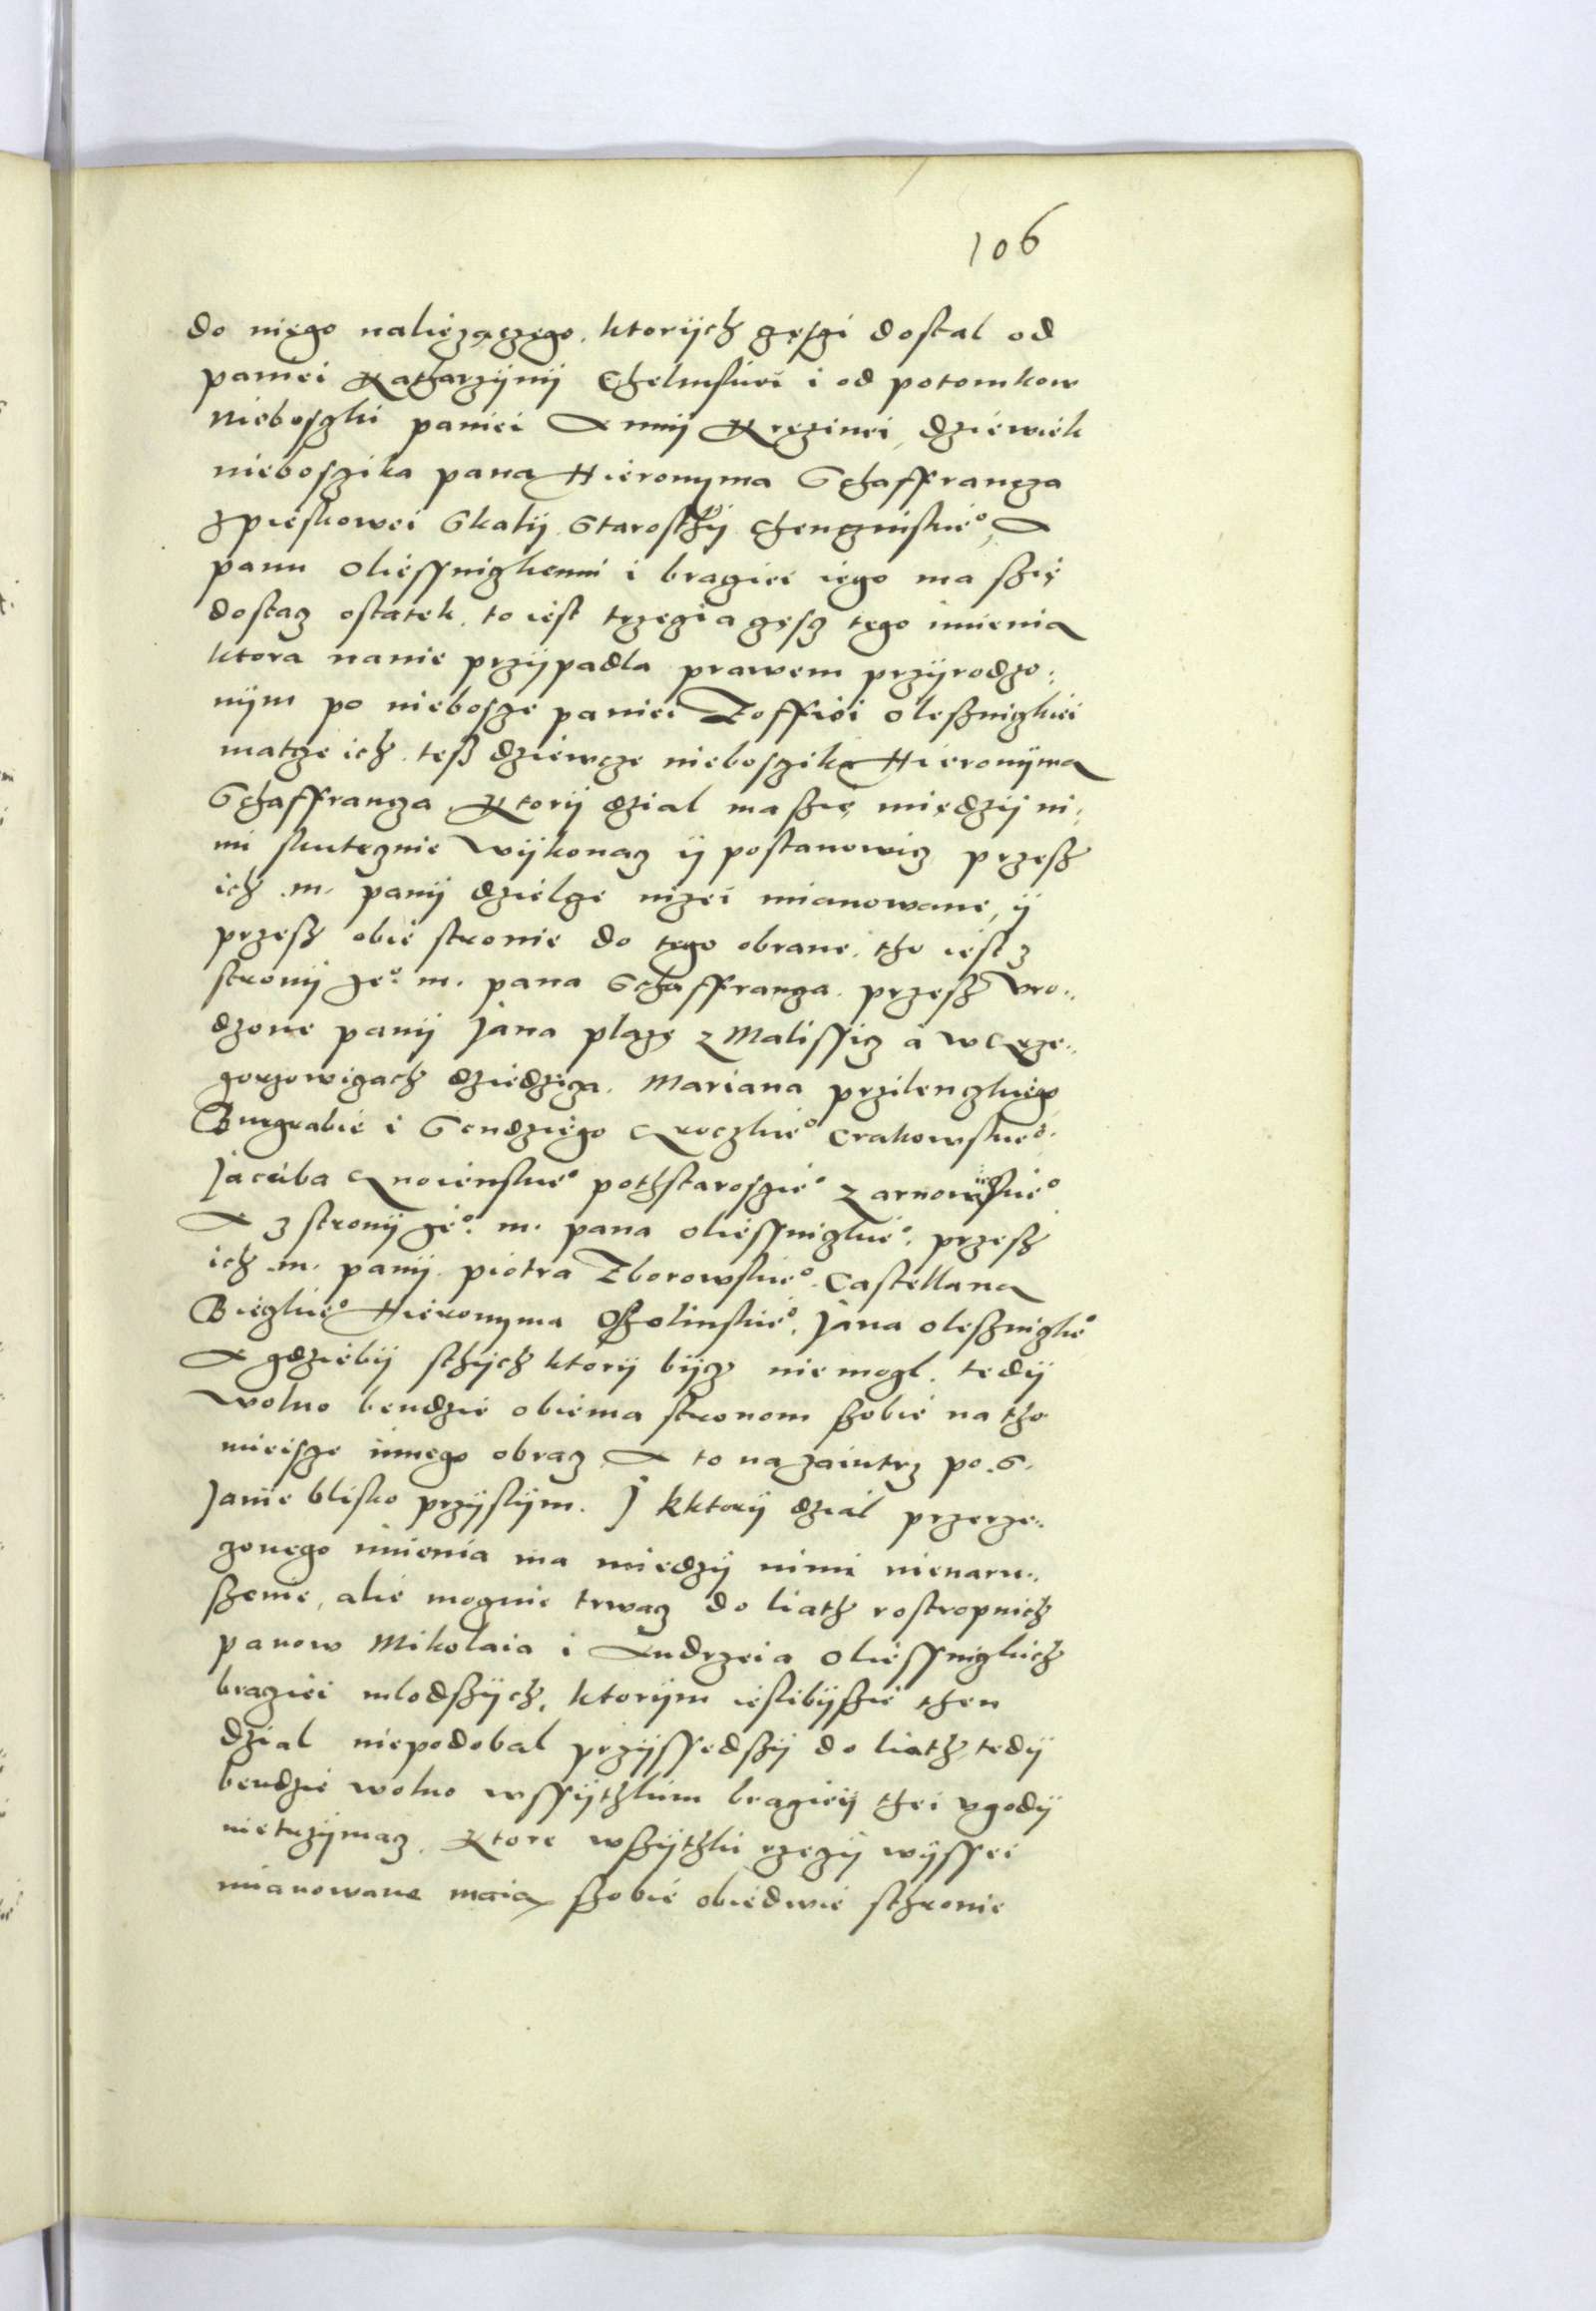 106
do niego nalięzączego. ktorijch gęsgi dostal od
paniei Katharzijnij Chelmskiei i od potomkow
Nieboszki paniei Annij Kręzinei, dziéwiek
nieboszika pana Hieronyma Schaffrancza
z pieskowei Skalij Starosthij Chenczinskie°, A
panu Oliessnigkiemu i bragiei iego ma szię
dostacz ostatek. to iest trzegia gęscz tego imienia
ktora nanie przijpadla prawem przijrodzo:
nijm po niebosze paniei Zoffiéi Oleßnigkiei
matcze ich. teß dziéwcze nieboszika Hieronijma
Schaffrancza, Ktorij dzial ma szię między ni:
mi skutecznie wijkonacz ij postanowicz przeß
ich .m. panij dzielcze niżei mianowane, ij
przeß obié stronie do tego obrane. tho iest z
stronij ge°: m. pana Schaffranca. przeß vro:
dzone panij Jana plazę z Malissicz a w Crze:
gorzowigach dziedzicza. Mariana przilenczkiego
Burgrabié i Sendziégo Groczkié° Crakowskie°.
Jacuba Gnoienskie° pothstaroszié° zarnowijeczskié°
A z stronij gé°: m. pana oliessnigkié°. przeß
ich .m. panij piotra Zborowskié° Castellana
Bieczkié° Hieronyma Oßolinskié°. Jana oleßnigkie°
A gdziébij sthijch ktorij bijcz nie mogl. tedij
wolno bendzié obiéma stronom szobié na tho
mieisce innego obracz A to nazaiutrz po .S.
Janie blisko przijslijm. J kktorij dzial przerze:
zonego imienia ma miedzij nimi nienaru:
szenie, alié mocznie trwacz do liath rostropnich
panow Mikolaia i Andrzeia Oliéssnigkich
bragiei mlodszijch. ktorijm iéslibijszié then
dzial niepodobal przijssedszij do liath tedij
bendzié wolno wssijthkim bragieij thei vgodij
nietrzijmacz. Ktore wszijthki rzeczij wijssei
mianowane maią szobié obiédwié sthronie